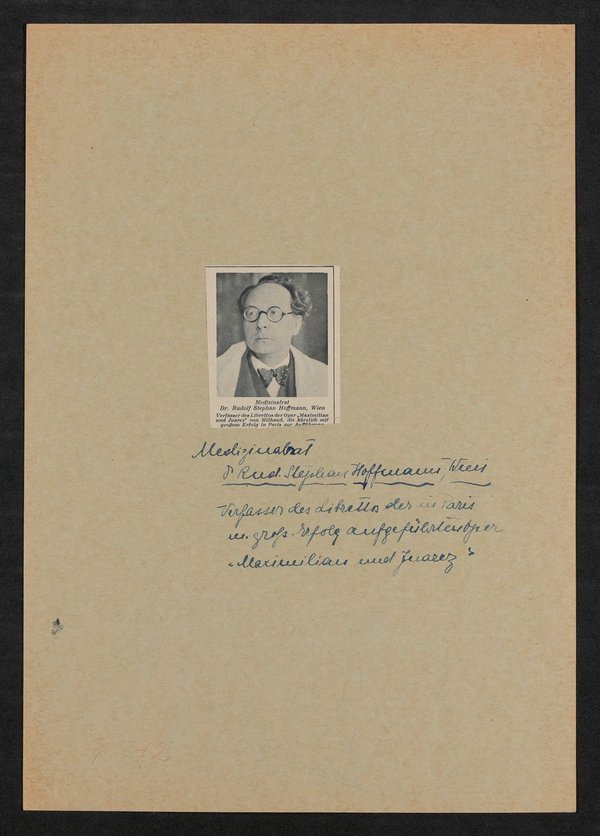 Medizinalrat
Dr. Rudolf Stephan Hoffmann, Wien
Verfasser des Librettos der Oper „Maximilian
und Juarez" von Milhaud, die kürzlich mit
großem Erfolg in Paris zur Aufführung
Medizinalrat
Rud. Stephan Hoffmann, Wien
Verfasser des Librettos der in Paris
m. groß. Erfolg aufgeführten Oper
„Maximilian und Juarez"